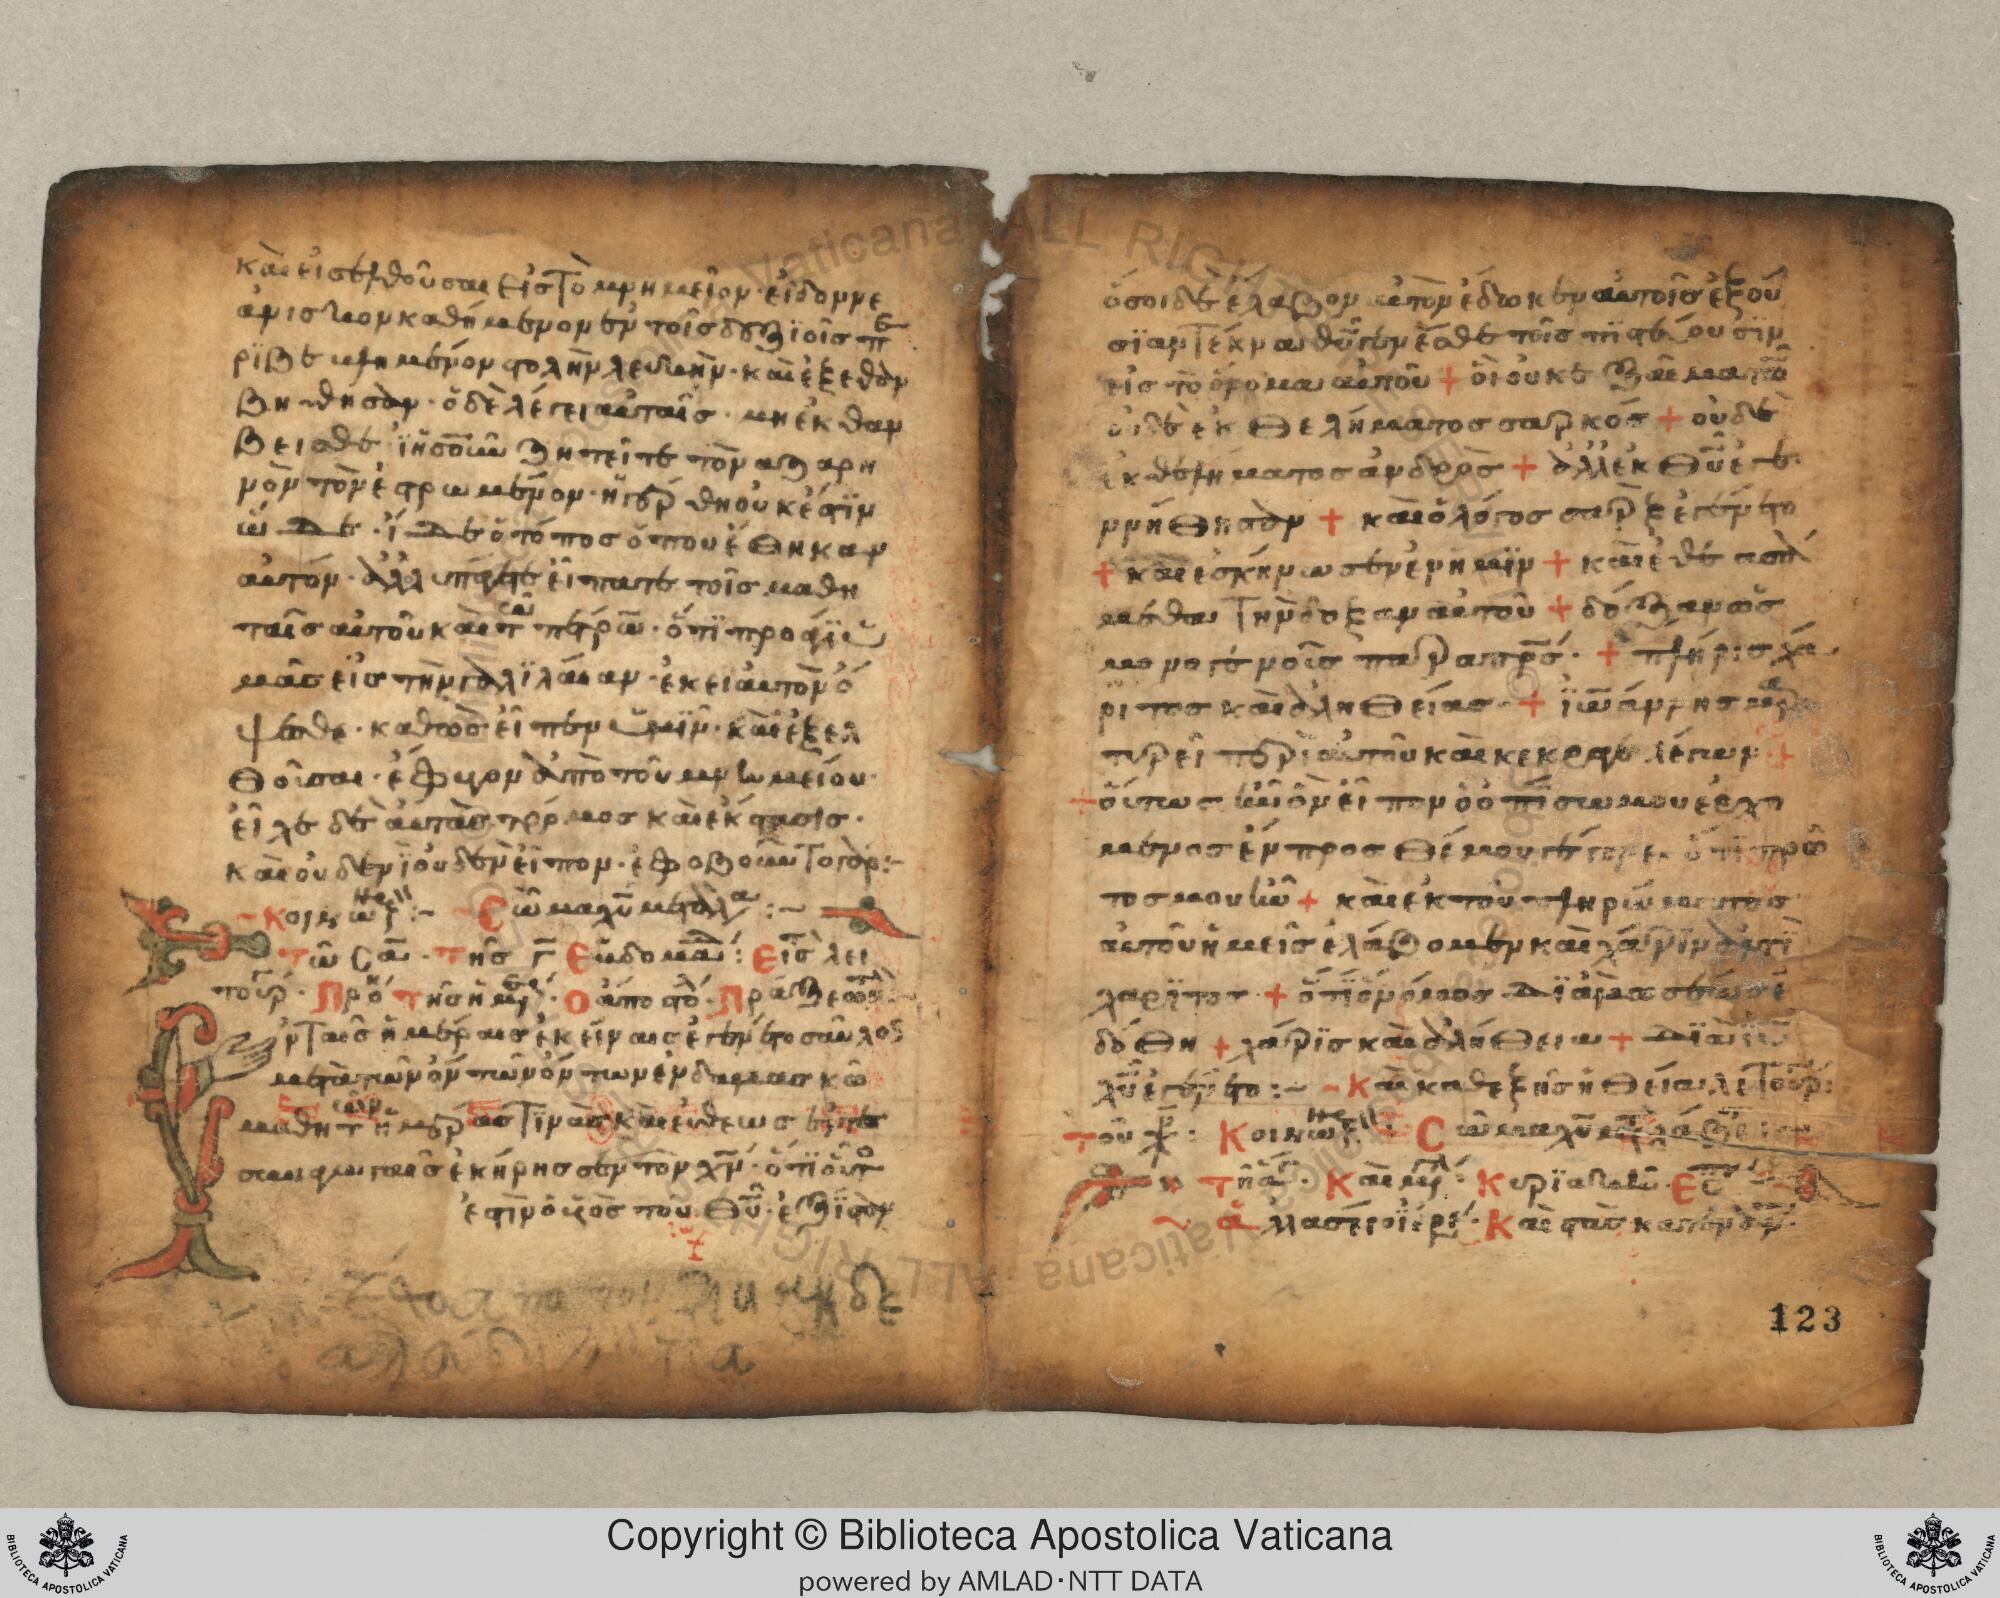 καὶ εἰσελθοῦσαι εἰς τὸ μνημεῖον· εἶδον νε
ανίσκον καθήμενον ἐν τοῖς δεξϊοῖς π
ρϊβεβλημένον στολὴν λευκὴν· καὶ ἐξεθαμ
βήθησαν· ὁ δὲ λέγει αὐταῖς· μὴ ἐκθαμ
βεῖσθε· ϊησοῦν ζητεῖτε τὸν ναζαρη
νὸν τὸν ἐσταυρωμένον· ἠγέρθη οὐκ ἔστϊν
ὧδε· ἴδε ὁ τόπος ὅπου ἔθηκαν
αὐτόν· ἀλλ ὑπάγετε εἴπατε τοῖς μαθη
ταῖς αὐτοῦ καὶ τῶ πέτρω· ὅτϊ προάγϊ ὑ
μᾶς εἰς τὴν γαλϊλαίαν· ἐκεῖ αὐτὸν ὄ
ψεσθε· καθὼς εἶπεν ὑμῖν· καὶ ἐξελ
θοῦσαι· ἔφυγον ἀπὸ τοῦ μνημείου·
εἶχε δὲ αὐτὰς τρόμος καὶ ἔκστασις·
καὶ οὐδενὶ οὐδὲν εἶπον· ἐφοβοῦντο γάρ:~
~κοινων:~ ~Σῶμα χῦ μεταλα:~
τῶ σα· τῆς γ εὐδομα: Εἰς λει
τουρ· Προ τῆς ἡμε· Ο αποστο· Πράξεων
Ἐν ταῖς ἡμέραις ἐκείναις ἐγένετο σαῦλος
μετὰ τῶν ὄντων ἐν δαμασκῶ
μαθητῶν ἡμέρας τινὰς καὶ εὐθέως ἐν τε
συναγωγαῖς ἐκήρησσεν τὸν χν· ὅτϊ οὗτο
ἐστὶν ὁ υἱὸς τοῦ θῦ· ἐξϊσταν
ὅσοι δὲ ἔλαβον αὐτὸν ἔδωκεν αὐτοῖς ἐξου
σίαν τέκνα θῦ γενέσθε τοῖς πϊστεύουσϊν
εἰς τὸ ὄνομα αὐτοῦ + οἳ οὐκ ἐξ αἱμάτω
οὐδὲ ἐκ θελήματος σαρκός + οὐδὲ
ἐκ θελήματος ἀνδρὸς + ἀλλ ἐκ θῦ ἐγε
ννήθησαν + καὶ ὁ λόγος σαρξ ἐγένετο
+ καὶ ἐσκήνωσεν ἐν ἡμῖν + καὶ ἐθεασά
μεθα τὴν δόξαν αὐτοῦ + δόξαν ὡς
μονογενοῖς παρὰ πρς· + πλήρις χά
ριτος καὶ ἀληθείας· + ϊωάννης μαρ
τυρεῖ περὶ αὐτοῦ καὶ κέκραγε λέγων +
+ οὗτως ἦν ὃν εἶπον ὁ ὀπίσω μου ἐρχό
μενος ἔμπροσθέν μου γέγονεν ὅτϊ πρῶ
τος μου ἦν + καὶ ἐκ τοῦ πληρώματος
αὐτοῦ ἡμεῖς ἐλάβομεν καὶ χάρϊν ἀντϊ
χάρϊτος + ὅτϊ ὁ νόμος δϊὰ μωσέως ἐ
δόθη + χάρϊς καὶ ἀλήθεια + δϊὰ ϊυ
χῦ ἐγένετο :~ ~Καὶ καθεξῆς ἡ θεία λειτουρ:
τοῦ χ: Κοινων: ~ Σῶμα χῦ μεταλάβε:
τῆ α· Καὶ με· Κυρϊακῆ· Ες
~ ἀλλαστιοϊερε· Καὶ στὰς κατενα·
123
Copyright © Biblioteca Apostolica Vaticana
powered by AMLAD·NTT DATA
BIBLIOTECA APOSTOLICA VATICANA
BIBLIOTECA APOSTOLICA VATICANA